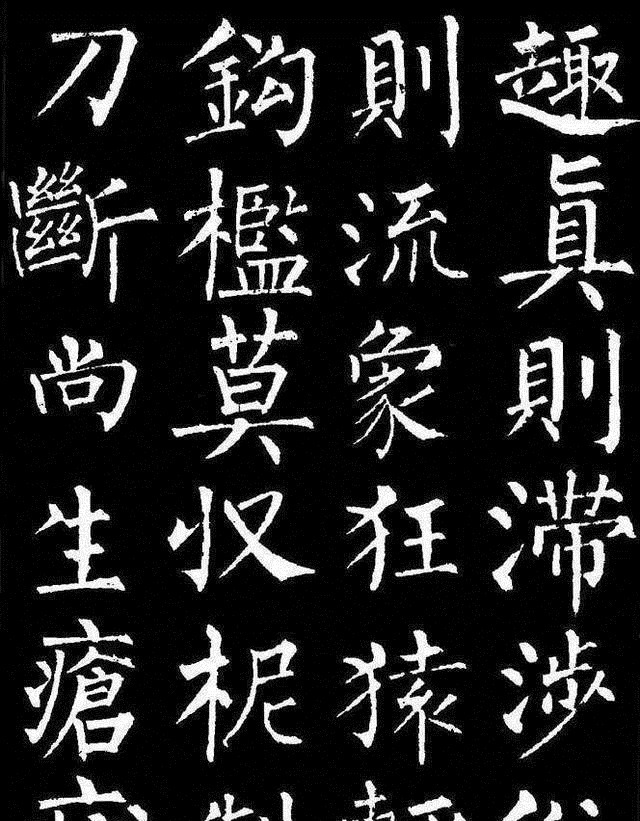 趣眞則滯涉
則流象狂猿
鈎檻莫収柅
刀斷尚生瘡